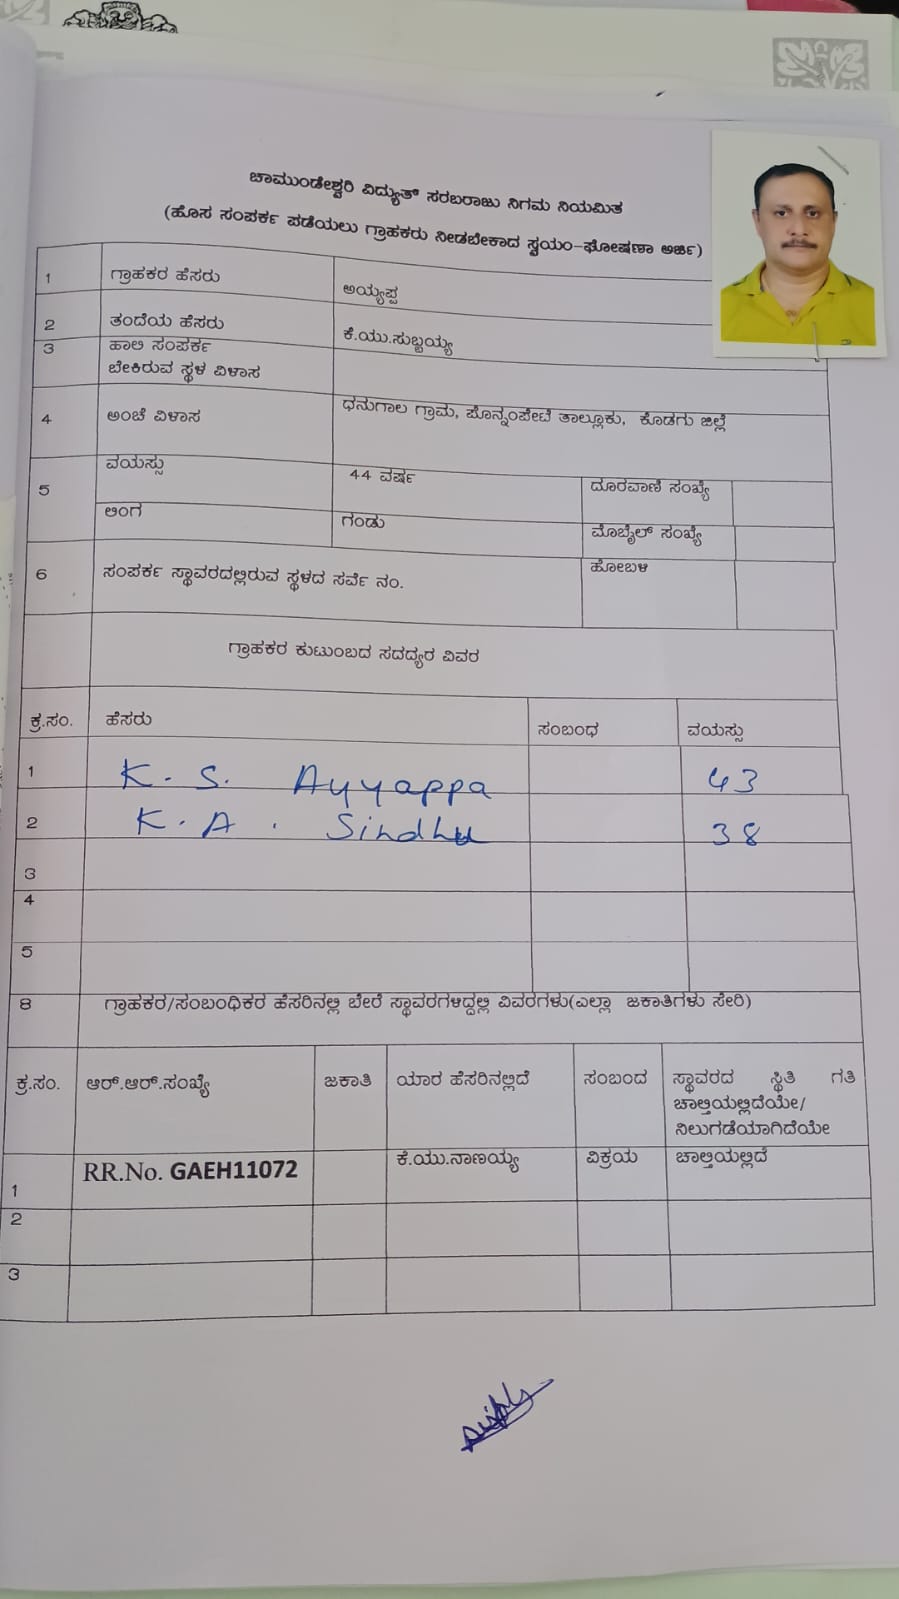 ಚಾಮುಂಡೇಶ್ವರಿ ವಿದ್ಯುತ್ ಸರಬರಾಜು ನಿಗಮ ನಿಯಮಿತ
(ಹೊಸ ಸಂಪರ್ಕ ಪಡೆಯಲು ಗ್ರಾಹಕರು ನೀಡಬೇಕಾದ ಸ್ವಯಂ-ಘೋಷಣಾ ಅರ್ಜಿ)
1 ಗ್ರಾಹಕರ ಹೆಸರು ಅಯ್ಯಪ್ಪ
2 ತಂದೆಯ ಹೆಸರು ಕೆ.ಯು.ಸುಬ್ಬಯ್ಯ
3 ಹಾಲಿ ಸಂಪರ್ಕ
ಬೇಕಿರುವ ಸ್ಥಳ ವಿಳಾಸ
4 ಅಂಚೆ ವಿಳಾಸ ಧನುಗಾಲ ಗ್ರಾಮ, ಪೊನ್ನಂಪೇಟೆ ತಾಲ್ಲೂಕು, ಕೊಡಗು ಜಿಲ್ಲೆ
5 ವಯಸ್ಸು 44 ವರ್ಷ ದೂರವಾಣಿ ಸಂಖ್ಯೆ
ಲಿಂಗ ಗಂಡು ಮೊಬೈಲ್ ಸಂಖ್ಯೆ
6 ಸಂಪರ್ಕ ಸ್ಥಾವರದಲ್ಲಿರುವ ಸ್ಥಳದ ಸರ್ವೆ ನಂ. ಹೋಬಳಿ
ಗ್ರಾಹಕರ ಕುಟುಂಬದ ಸದದ್ಯರ ವಿವರ
ಕ್ರ.ಸಂ. ಹೆಸರು ಸಂಬಂಧ ವಯಸ್ಸು
1 K. S. Ayyappa 43
2 K. A. Sindhu 38
3
4
5
8 ಗ್ರಾಹಕರ/ಸಂಬಂಧಿಕರ ಹೆಸರಿನಲ್ಲಿ ಬೇರೆ ಸ್ಥಾವರಗಳಿದ್ದಲ್ಲಿ ವಿವರಗಳು(ಎಲ್ಲಾ ಜಕಾತಿಗಳು ಸೇರಿ)
ಕ್ರ.ಸಂ. ಆರ್.ಆರ್.ಸಂಖ್ಯೆ ಜಕಾತಿ ಯಾರ ಹೆಸರಿನಲ್ಲಿದೆ ಸಂಬಂದ ಸ್ಥಾವರದ ಸ್ಥಿತಿ ಗತಿ
ಚಾಲ್ತಿಯಲ್ಲಿದೆಯೇ/
ನಿಲುಗಡೆಯಾಗಿದೆಯೇ
1 RR.No. GAEH11072 ಕೆ.ಯು.ನಾಣಯ್ಯ ವಿಕ್ರಯ ಚಾಲ್ತಿಯಲ್ಲಿದೆ
2
3